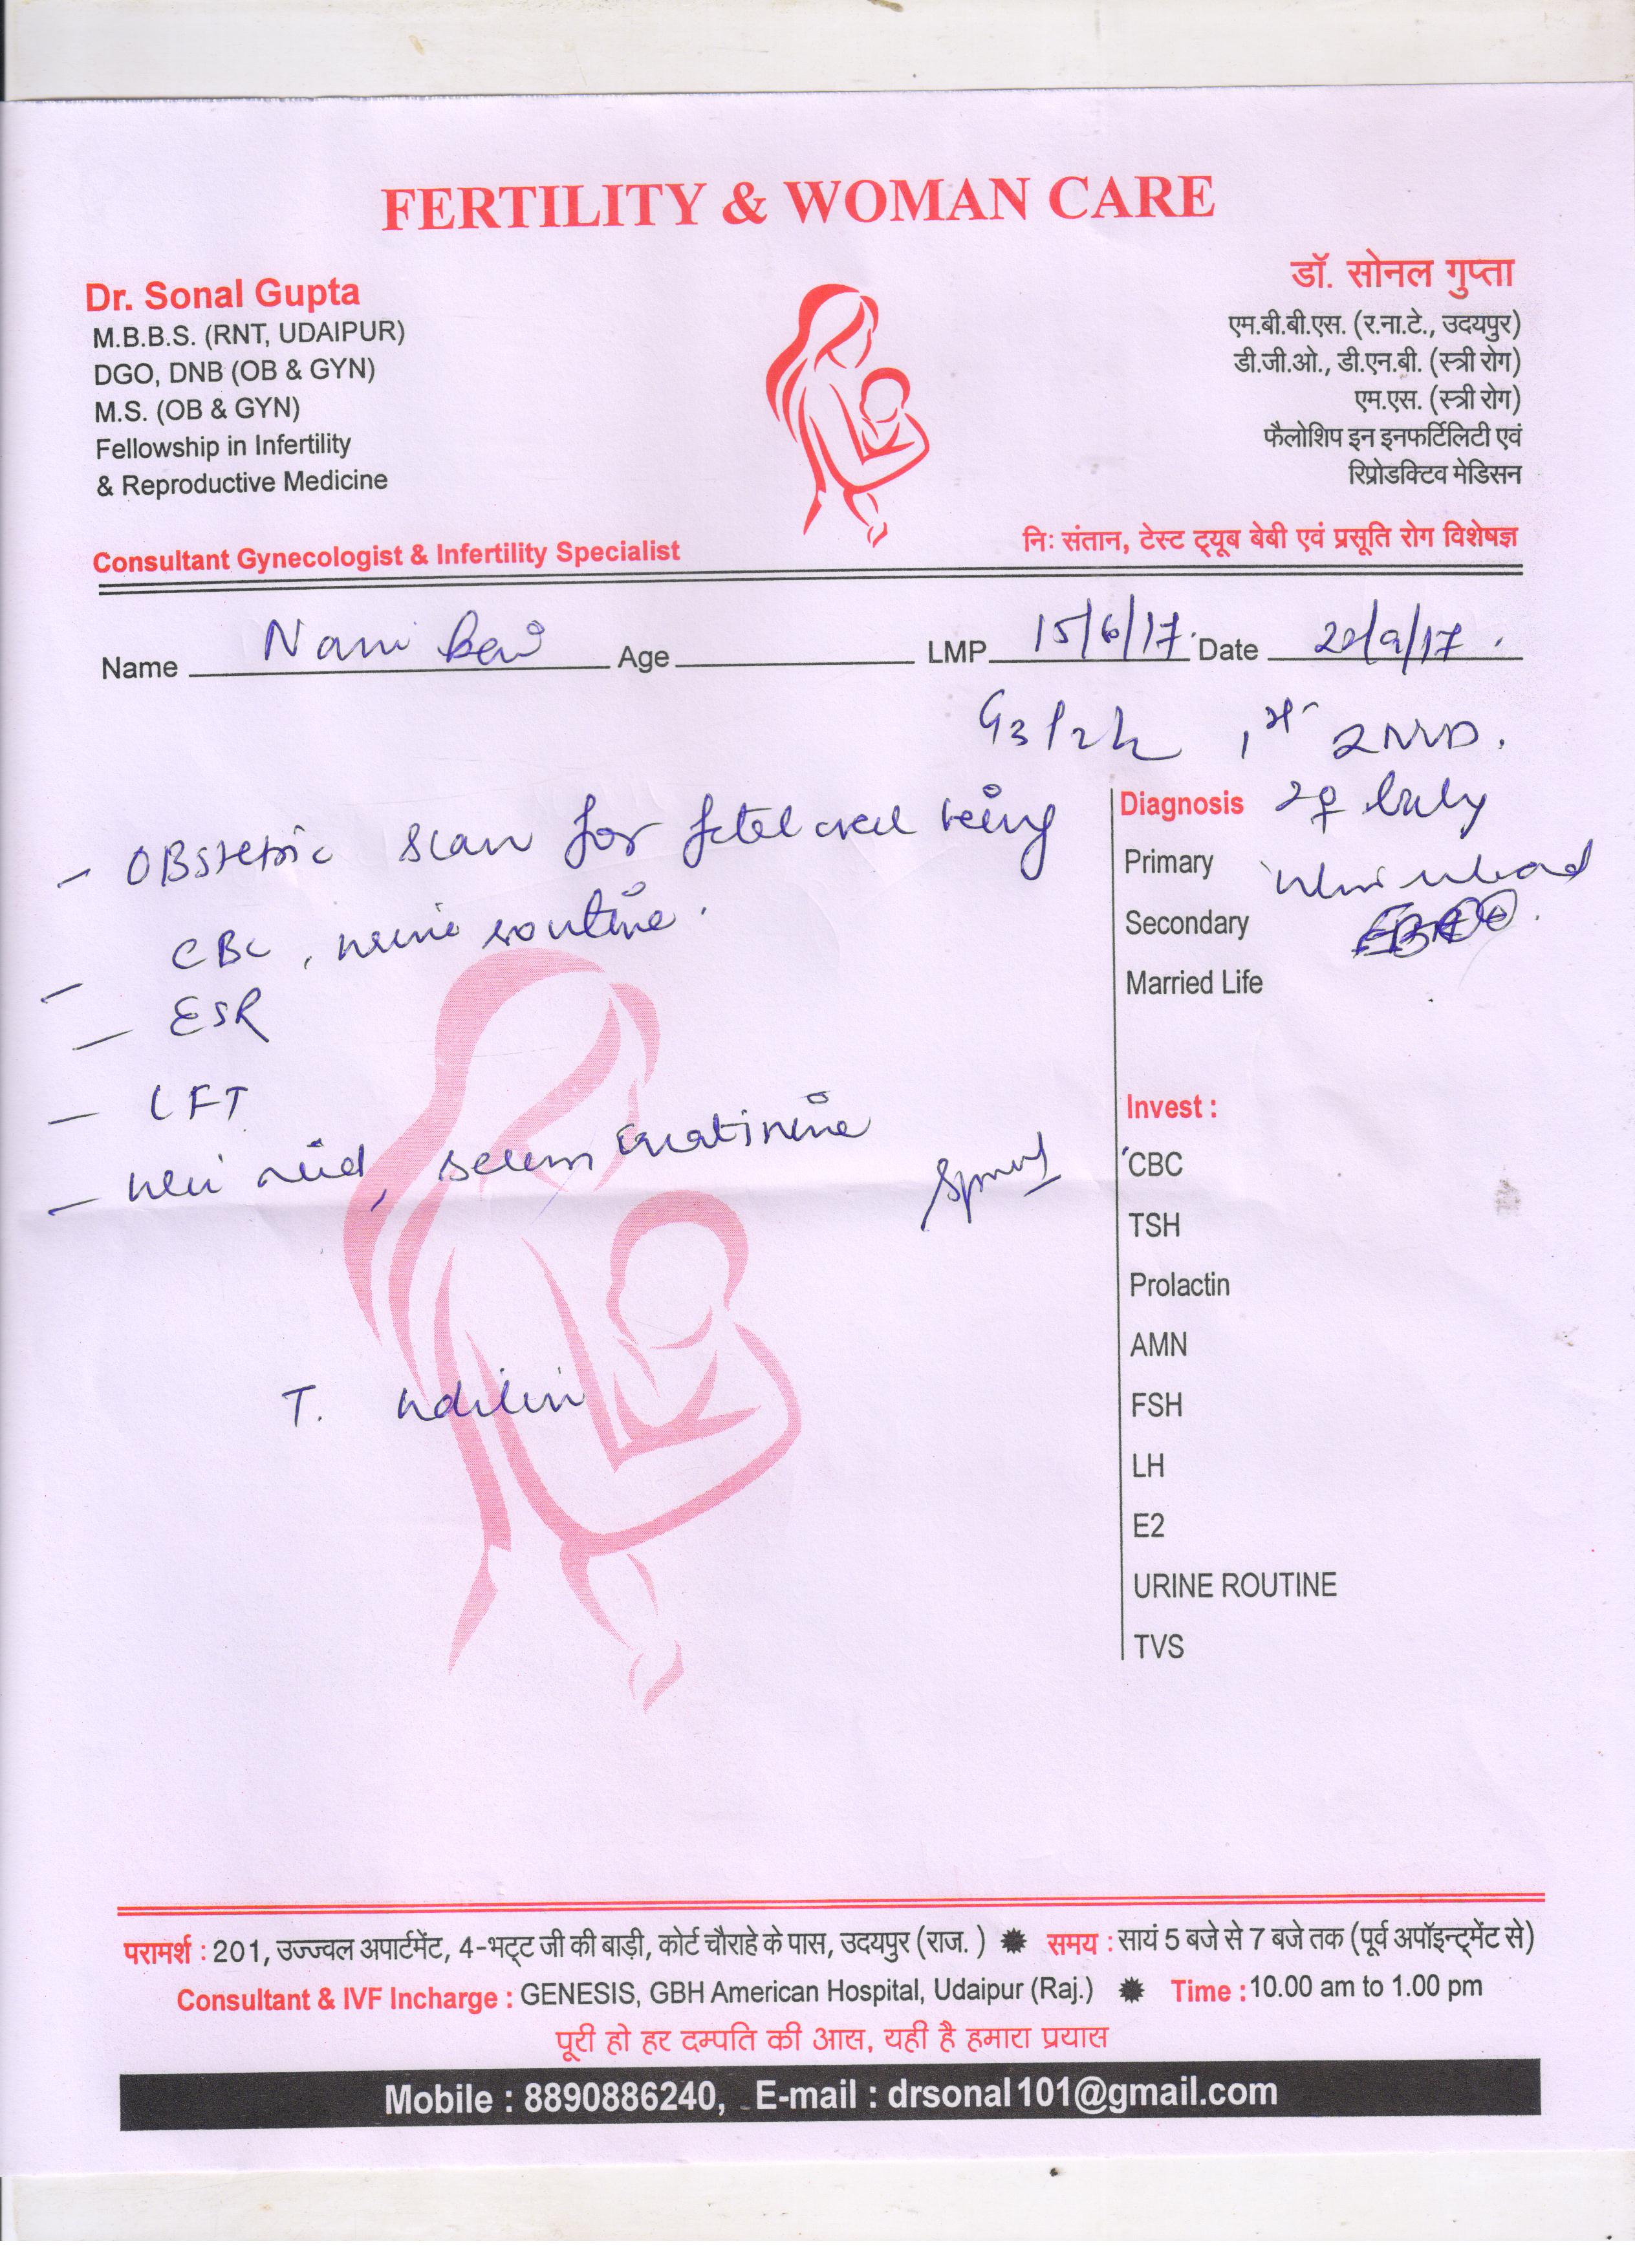 FERTILITY & WOMAN CARE
Dr. Sonal Gupta
M.B.B.S. (RNT, UDAIPUR)
DGO, DNB (OB & GYN)
M.S. (OB & GYN)
Fellowship in Infertility
& Reproductive Medicine
Consultant Gynecologist & Infertility Specialist
डॉ. सोनल गुप्ता
एम.बी.बी.एस. (र.ना.टे., उदयपुर)
डी.जी.ओ., डी.एन.बी. (स्त्री रोग)
एम.एस. (स्त्री रोग)
फैलोशिप इन इनफर्टिलिटी एवं
रिप्रोडक्टिव मेडिसन
निः संतान, टेस्ट ट्यूब बेबी एवं प्रसूति रोग विशेषज्ञ
Name Age LMP 15/6/17. Date 20/9/17.
- OBstetric scan for fetal well being
- CBC, urine routine.
- ESR
- LFT
- uric acid, serum creatinine
T.
Diagnosis
Primary
Secondary
Married Life
Invest :
CBC
TSH
Prolactin
AMN
FSH
LH
E2
URINE ROUTINE
TVS
परामर्श : 201, उज्ज्वल अपार्टमेंट, 4-भट्ट जी की बाड़ी, कोर्ट चौराहे के पास, उदयपुर (राज. ) समय : सायं 5 बजे से 7 बजे तक (पूर्व अपॉइन्ट्मेंट से)
Consultant & IVF Incharge : GENESIS, GBH American Hospital, Udaipur (Raj.) Time : 10.00 am to 1.00 pm
पूरी हो हर दम्पति की आस, यही है हमारा प्रयास
Mobile : 8890886240, E-mail : drsonal101@gmail.com